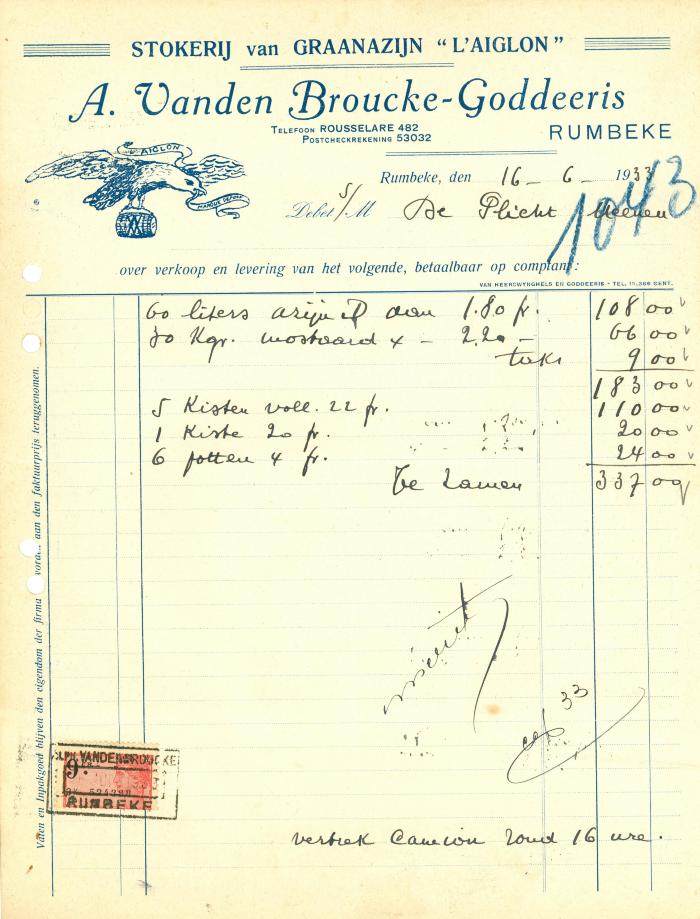 STOKERIJ van GRAANAZIJN “L'AIGLON”
A. Vanden Broucke-Goddeeris
TELEFOON ROUSSELARE 482
POSTCHECKREKENING 53032
RUMBEKE
L'AIGLON
MARQUE DEPOSÉE
Rumbeke, den 16 - 6 - 1933
Debet S/M De Plicht Meenen
1043
over verkoop en levering van het volgende, betaalbaar op comptant:
VAN HEERSWYNGHELS EN GODDEERIS - TEL. 15.366 GENT.
60 liters azijn aan 1.80 fr. 108 00
30 Kgr. mostaard x - 2.20 - 66 00
taks 9 00
183 00
5 Kisten voll. 22 fr. 110 00
1 Kiste 20 fr. 20 00
6 potten 4 fr. 24 00
Te zamen 337 00
33
VANDENBROUCKE
9
RUMBEKE
vertrek Camion rond 16 ure.
Vaten en Inpakgoed blijven den eigendom der firma aan den faktuurprijs teruggenomen.